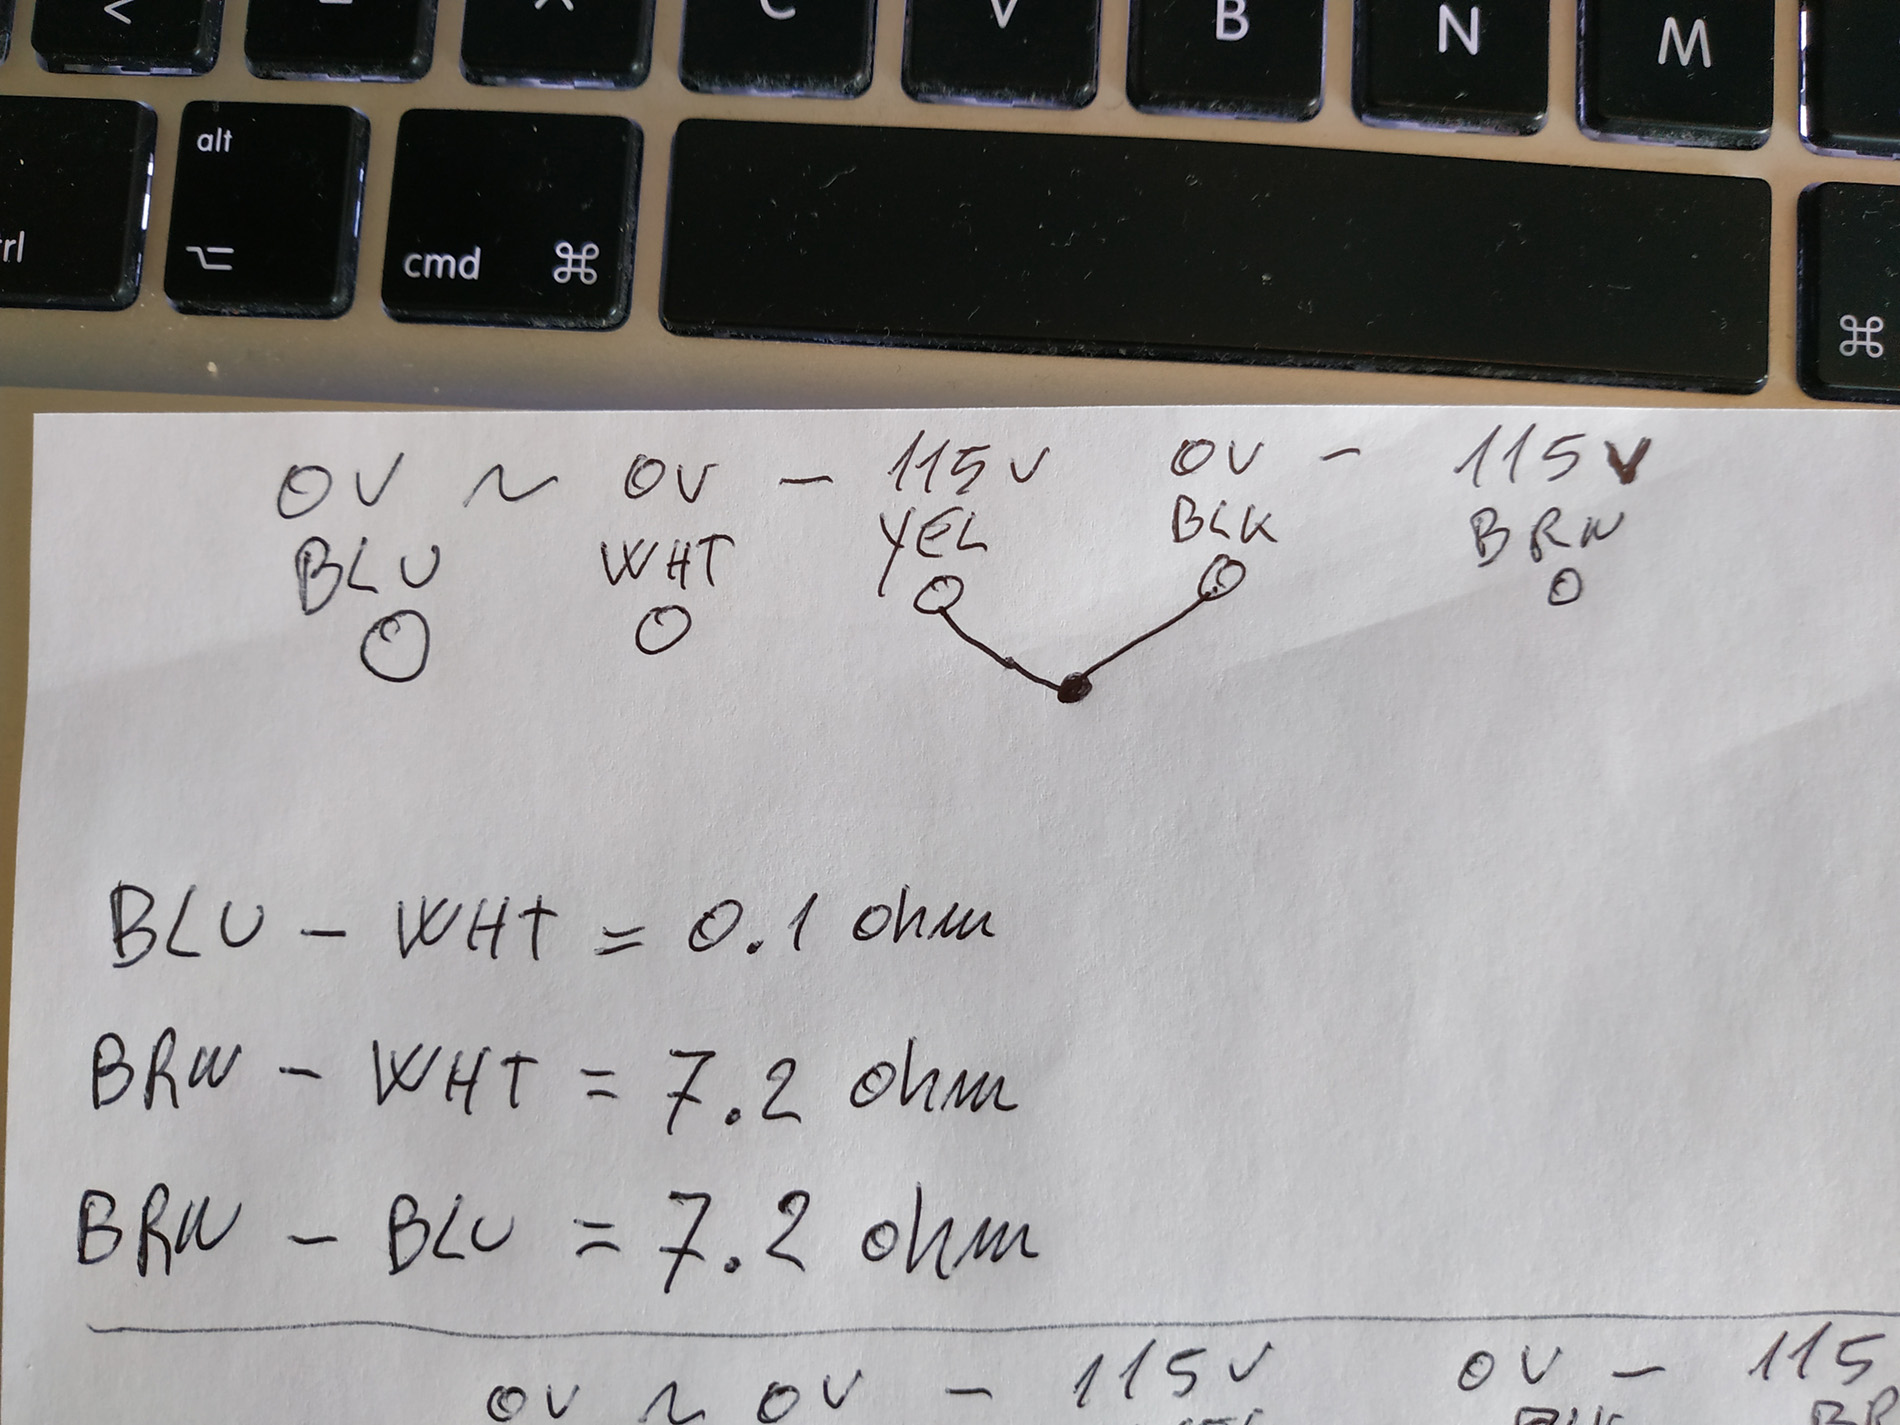 < C V B N M
alt
rl ⌥ cmd ⌘ ⌘
0V ~ 0V - 115V 0V - 115V
BLU WHT YEL BLK BRN
BLU - WHT = 0.1 ohm
BRN - WHT = 7.2 ohm
BRN - BLU = 7.2 ohm
0V ~ 0V - 115V 0V - 115